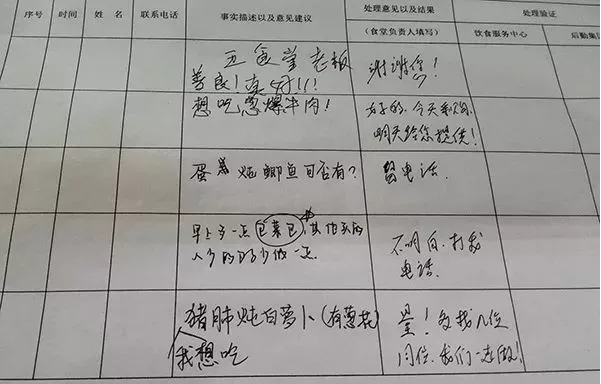 序号 时间 姓名 联系电话 事实描述以及意见建议 处理意见以及结果 处理验证
(食堂负责人填写) 饮食服务中心 后勤集
五食堂老板
善良!真好!!!
谢谢您!
想吃葱爆牛肉!
好的,今天采购,
明天给您提供!
蛋羹炖鲫鱼可否有?
留电话.
早上多一点包菜包,其他买的
人少的可少做一点.
不明白.打我
电话.
猪肺炖白萝卜(有葱花)
我想吃
晕!多找几位
同位.我们一起做!